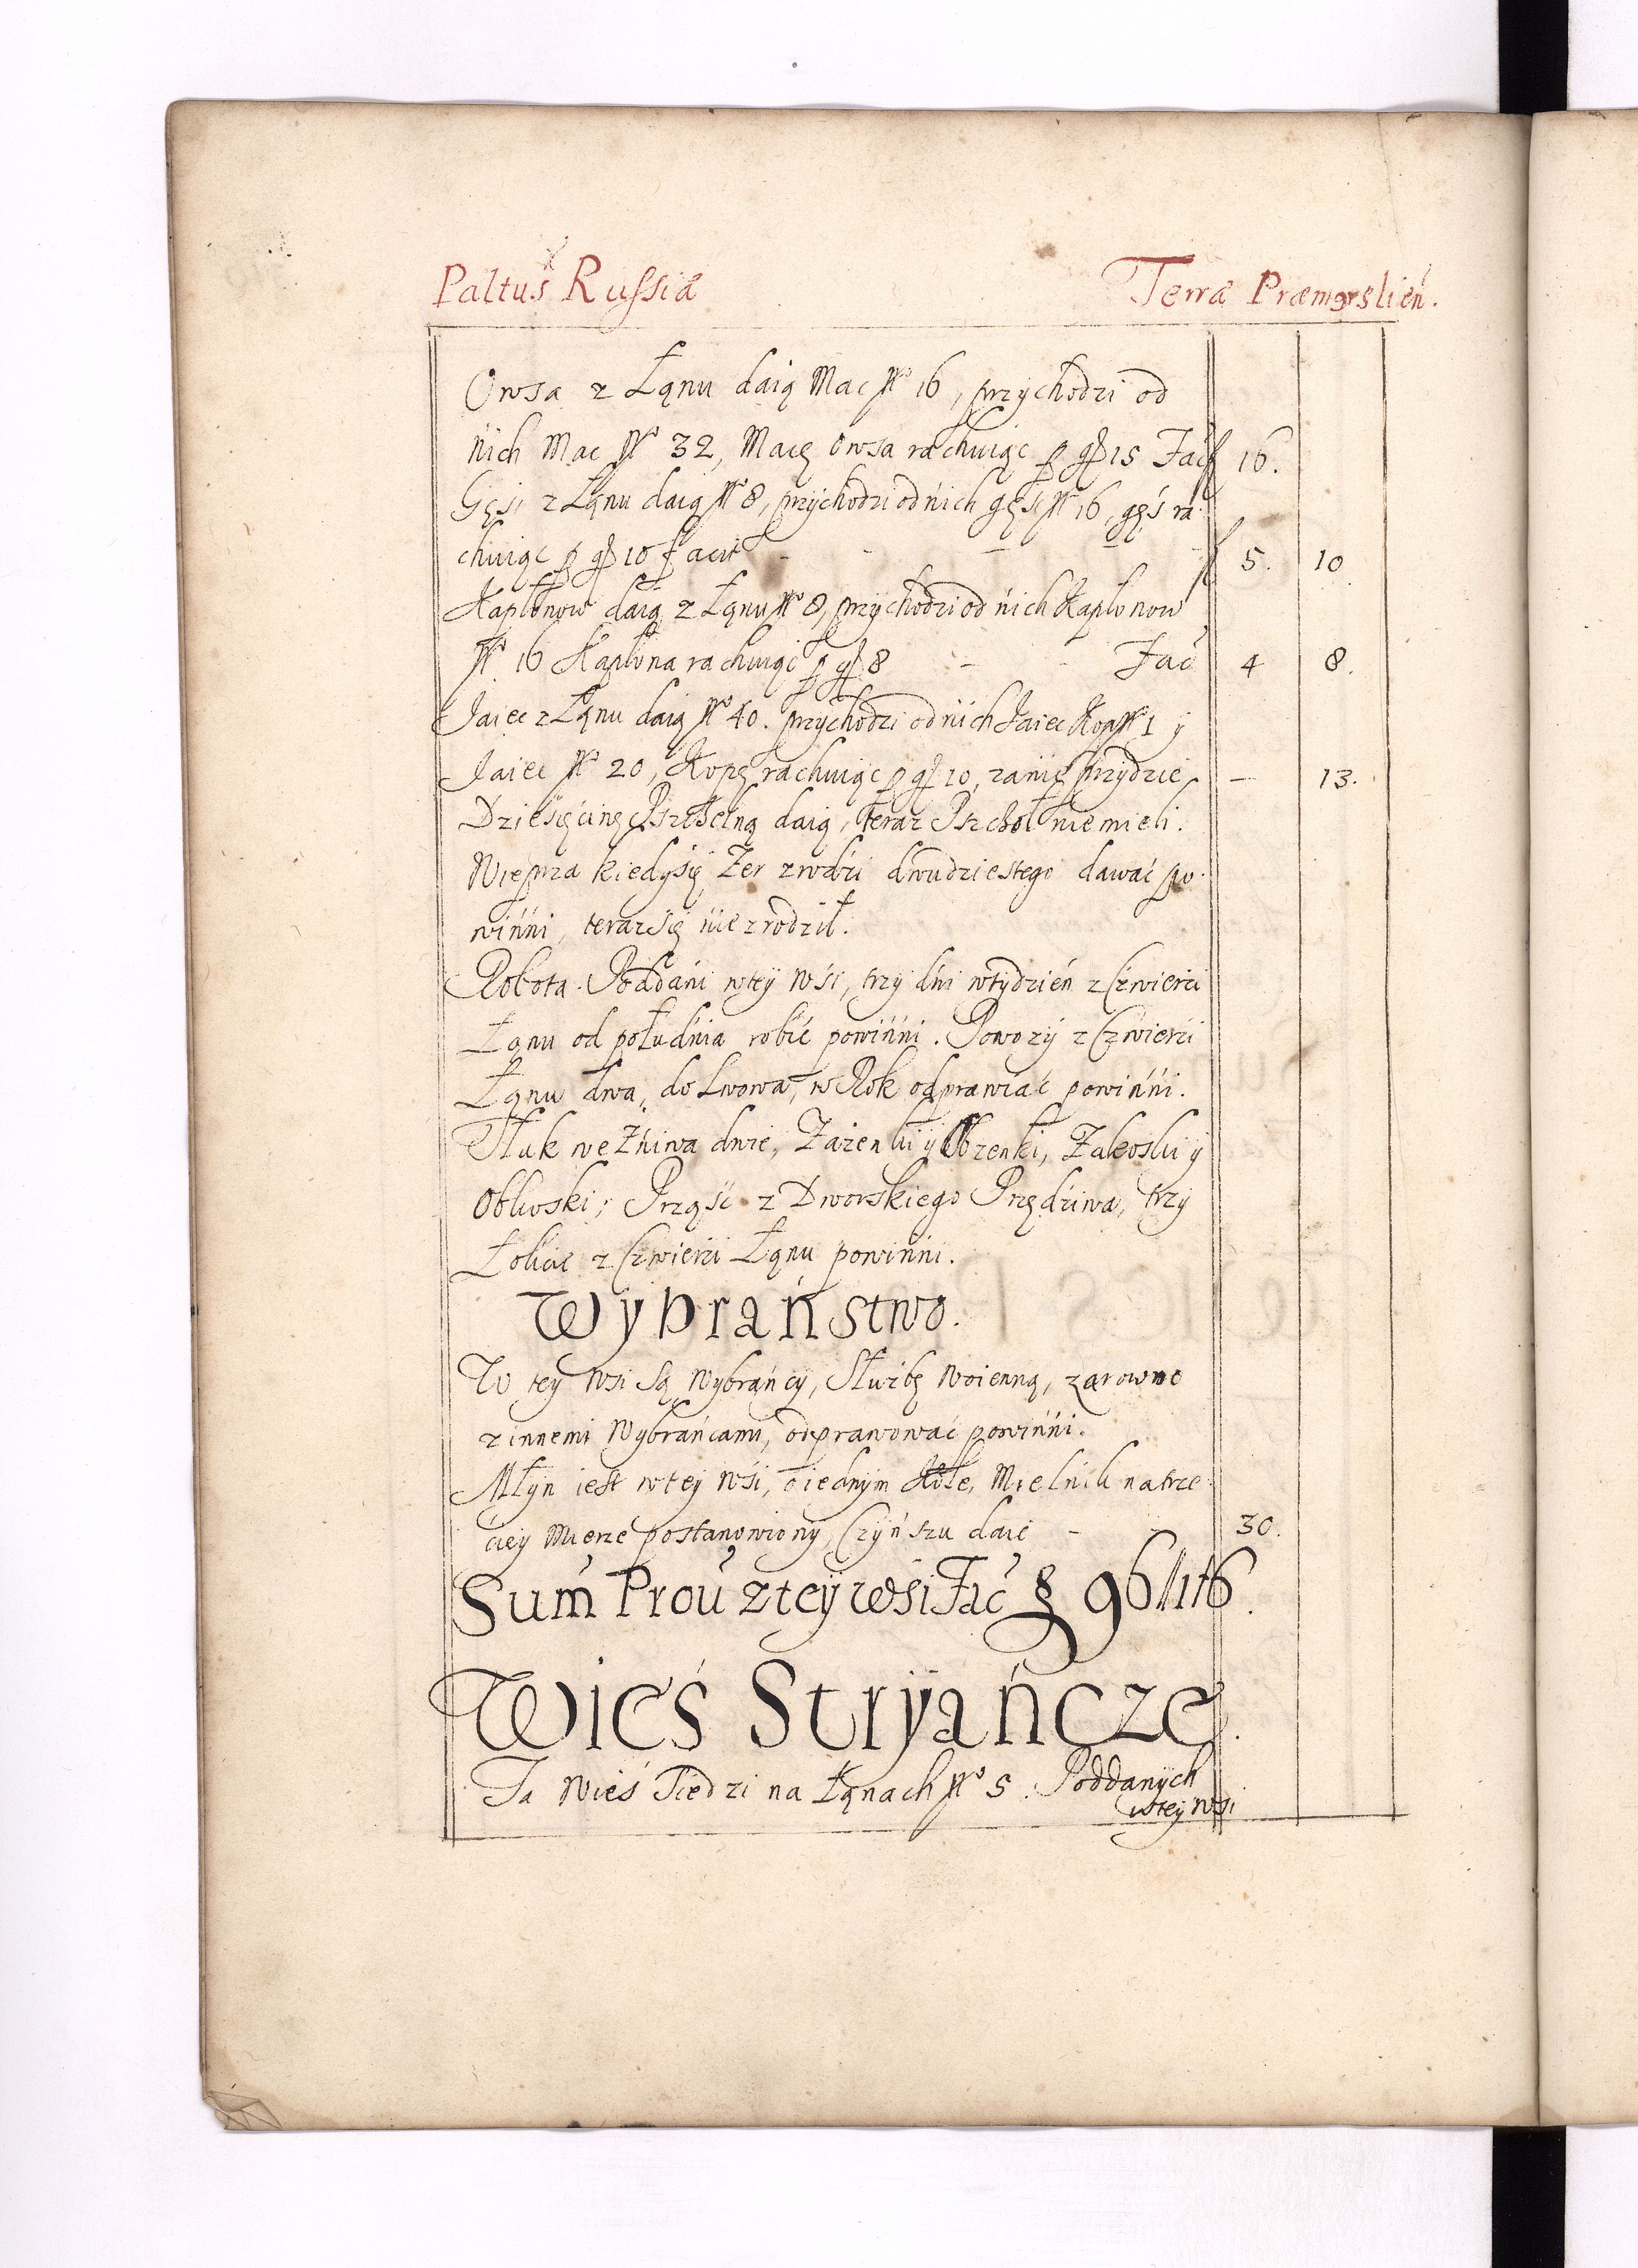 Paltus Russiæ Terræ Præmysslień.
Owsa z Łąnu daią Mac No 16, przychodzi od
nich Mac No 32, Macę Owsa rachuiąc p gr 15 Fac 16.
Gęsi z Łąnu daią No 8, przychodzi od nich gęsi No 16, gęś ra
chuiąc p gr 10 facit - - - - 5. 10
Kapłonow daią z Łąnu No 8, przychodzi od nich Kapłonow
No 16 Kapłona rachuiąc p gr 8 - - Fac 4 8.
Jaiec z Łąnu daią No 40. przychodzi od nich Jaiec Kop No 1 y
Jaiec No 20, Kopę rachuiąc p gr 10, za nię przydzie - 13.
Dziesięcinę Pszczelną daią, teraz Pszchoł nie mieli.
Wieprza kiedy się Żer zrodzi dwudziestego dawać po
winni, teraz się nie zrodził.
Robota. Poddani w tey wsi, trzy dni w tydzień z Czwierci
Łąnu od południa robić powinni. Powozy z Czwierci
Łąnu dwa, do Lwowa, w Rok odprawiać powinni.
Tłuk we Żniwa dwie, Zażenki y Obżenki, Zakoski y
Obkoski; Prząść z Dworskiego Przędziwa, trzy
Łokcie z Czwierci Łąnu powinni.
Wybraństwo.
W tey wsi są Wybrańcy, Służbę Woienną, zarowno
z innemi Wybrańcami, odprawować powinni.
Młyn iest w tey wsi, o iednym Kole, Mielnik na trze
ciey Mierze postanowiony, Czyńszu daie - - 30.
Sum Prou z tey wsi Fac § 96//1//6.
Wieś Stryańcze.
Ta Wieś Siedzi na Łąnach No 5. Poddanych
w tey wsi